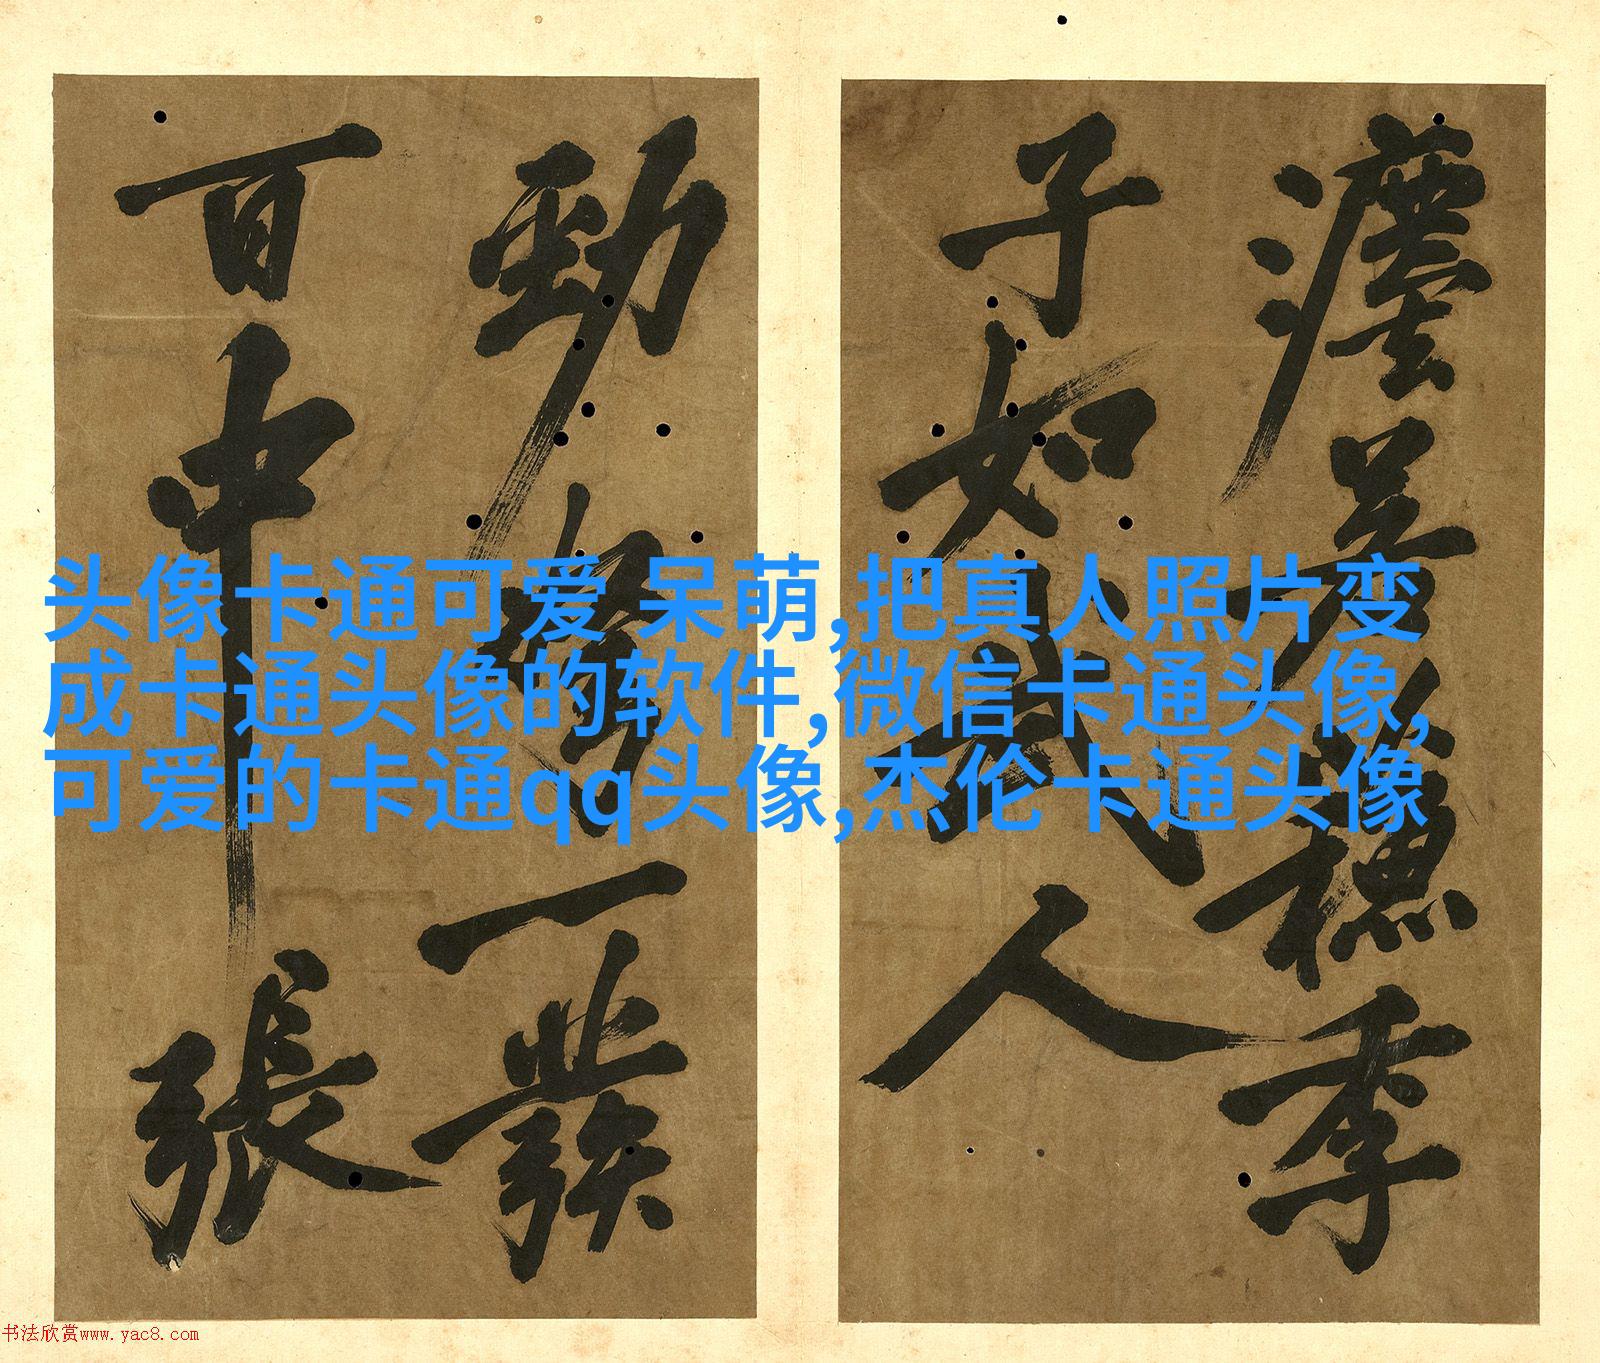 头像卡通可爱 呆萌,把真人照片变
成卡通头像的软件,微信卡通头像,
可爱的卡通qq头像,杰伦卡通头像
穗季
子如武人
勁弩一發
百中張
书法欣赏www.yac8.com